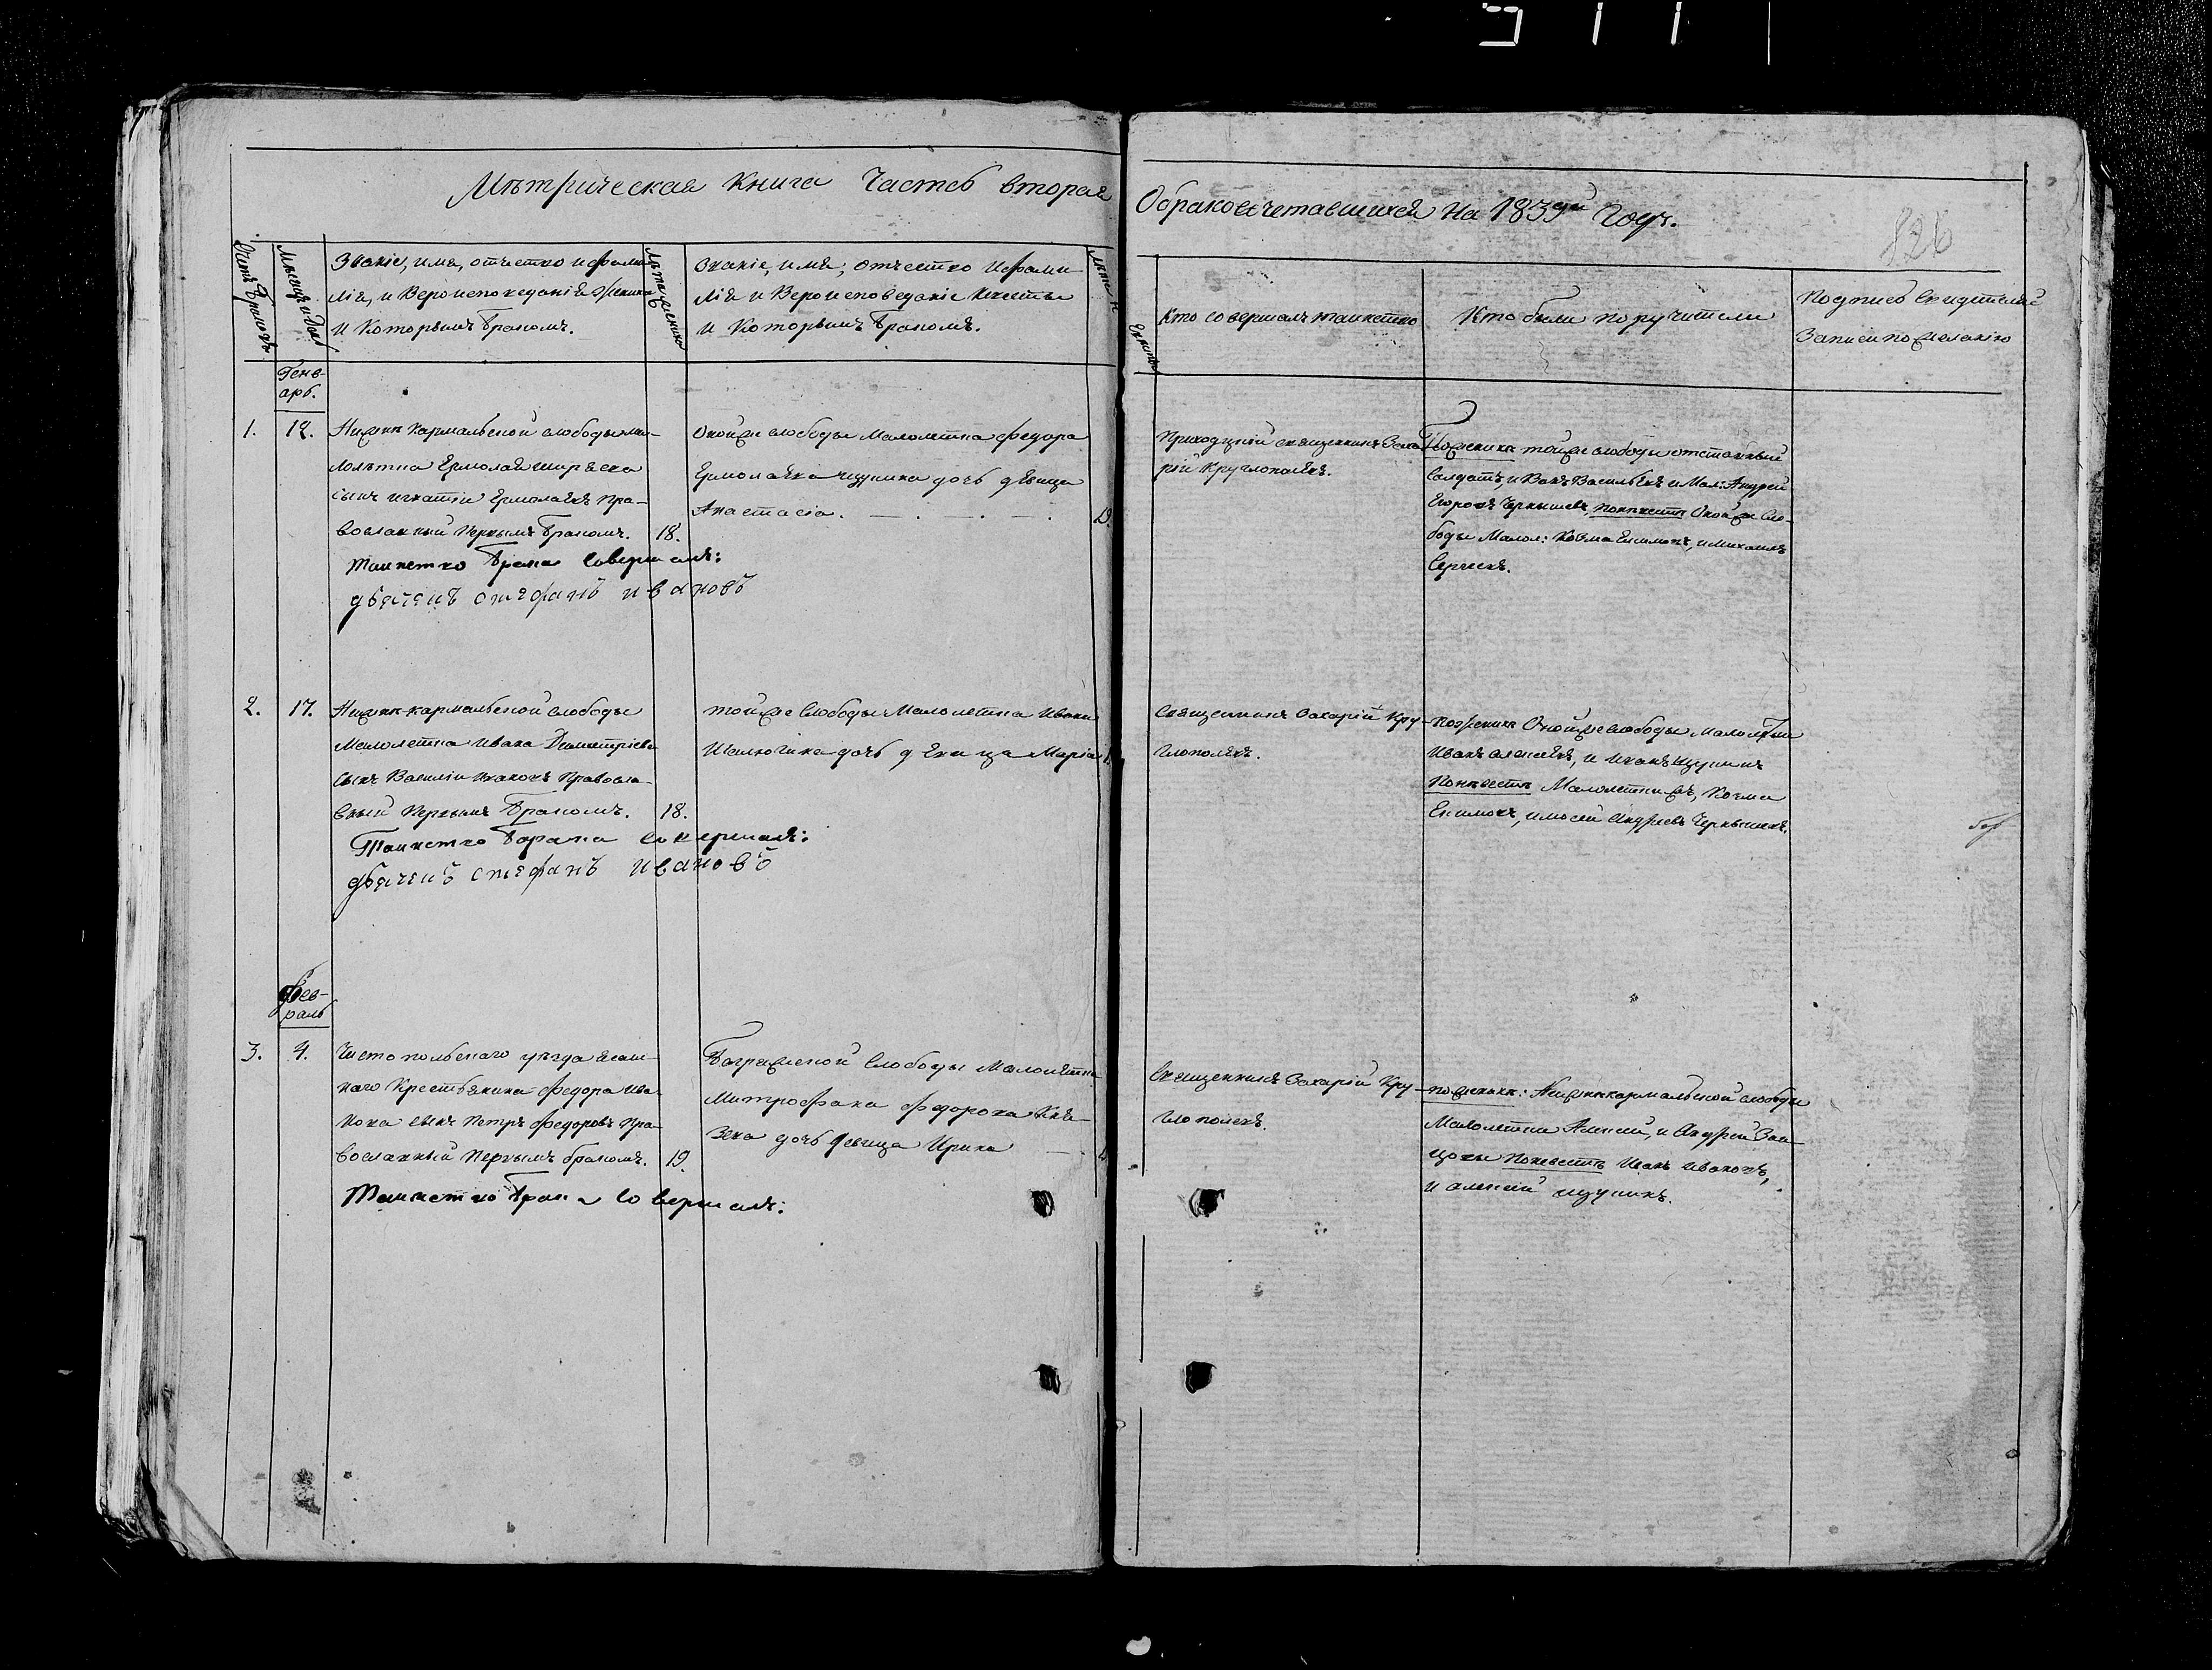 Мѣтрическая Книга Часть вторая
О бракосочетавшихся На 1839й Годъ.
826
Счетъ браковъ
Мѣсяцъ и день
Званіе, имя, отчество и фами-
лія, и Вероисповеданія Жениха
и Которымъ бракомъ.
Лѣта жениха
Званіе, имя, отчество и фами-
лія и Вероисповеданіе Невесты
и Которымъ бракомъ.
Лѣта Невѣсты
Кто совершалъ таинство
Кто были поручители
Подпись Свидетелей
Записи по желанію
Генв-
арь.
1. 12.
Нижнекармальской слободы ма-
лолѣтна Ермолая
сынъ Игнатій Ермолаевъ Пра-
вославный Первымъ бракомъ. 18.
Таинство Брака Совершалъ:
дьяченъ стефанъ ивановъ
Оной же слободы Малолетна федора
Ермолаева щукина дочь девица
Анастасіа. 19.
Приходскій священникъ Заха-
рій Круглополевъ.
По женихѣ той же слободы отставный
Солдатъ, Иванъ Васильевъ и Мал: Андрей
Егоровъ Чернышевъ, по невестѣ Оной же Сло-
боды Малол: Козма Екимовъ, и Михаилъ
Сергеевъ.
2. 17.
Нижнекармальской слободы
Малолетна Ивана Дмитріева
Сынъ Василій Ивановъ Правосла-
вный Первымъ бракомъ. 18.
Таинство Барака Совершалъ:
дьяченъ стефанъ ивановъ
той же Слободы Малолетна Ивана
Шалюгина дочь девица Маріа
Священникъ Захарій Кру-
глополевъ.
по женихѣ Оной же слободы Малолѣтны
Иванъ Алексеевъ, и Иванъ Щукинъ
По невестѣ Малолетны жъ, Козма
Екимовъ, и Мосей Андреевъ Чернышевъ.
Фев-
раль
3. 4.
Чистопольскаго уѣзда ясаш-
наго Крестьянина Федора Ива-
нова сынъ Петръ Федоровъ Пра-
вославный Первымъ бракомъ. 19.
Таинство Брака Совершалъ:
Багряжской Слободы Малолѣтна
Митрофана Федорова Кня-
зева дочь девица Ирина
Священникъ Захарій Кру-
глополевъ.
по женихѣ: Нижнекармальской слободы
Малолетны Алексей, и Андрей Зай-
цовы По невестѣ Иванъ Ивановъ,
и алексей щукинъ.